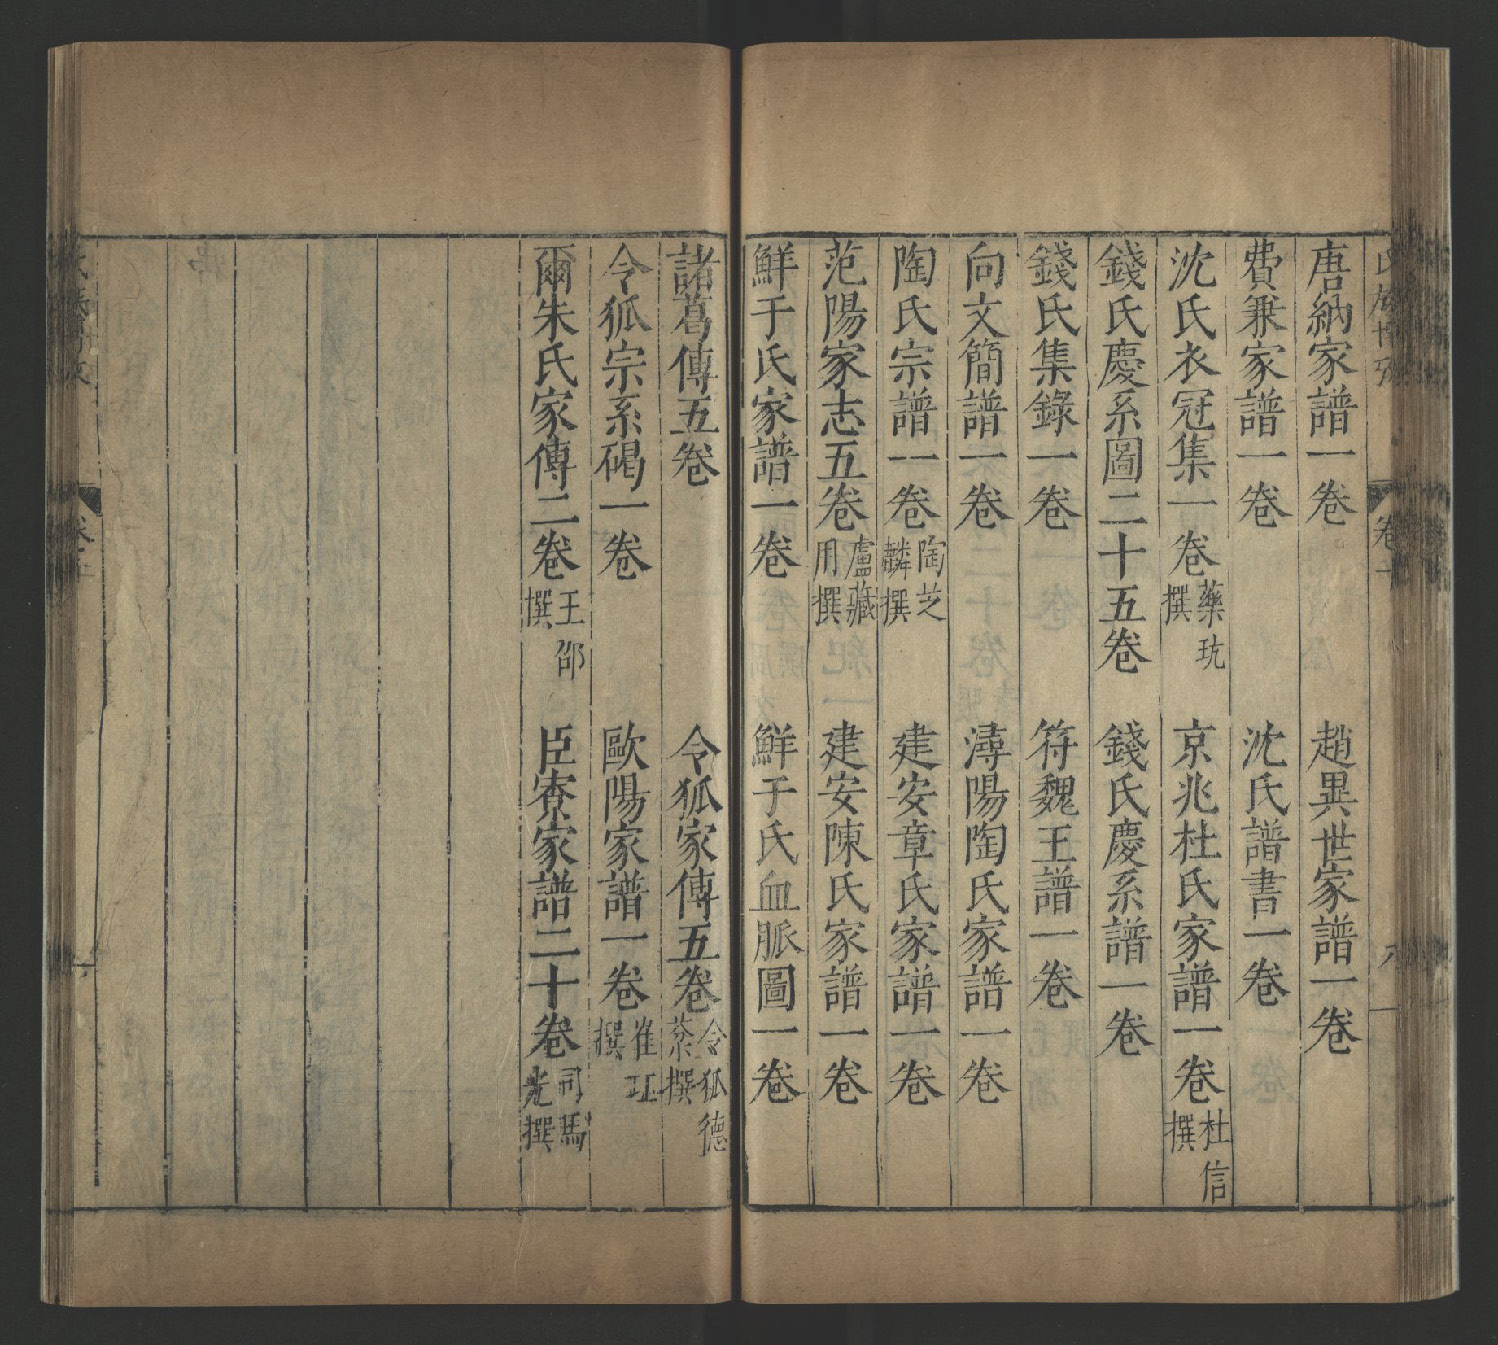 唐納家譜一卷　趙異世家譜一卷
費兼家譜一卷　沈氏譜書一卷
沈氏衣冠集一卷藥玧撰　京兆杜氏家譜一卷杜信撰
錢氏慶系圖二十五卷　錢氏慶系譜一卷
錢氏集錄一卷　符魏王譜一卷
向文簡譜一卷　潯陽陶氏家譜一卷
陶氏宗譜一卷陶芝麟撰　建安章氏家譜一卷
范陽家志五卷盧藏用撰　建安陳氏家譜一卷
鮮于氏家譜一卷　鮮于氏血脈圖一卷
諸葛傳五卷　令狐家傳五卷令狐德棻撰
令狐宗系碣一卷　歐陽家譜一卷崔㺬撰
爾朱氏家傳二卷王邵撰　臣寮家譜二十卷司馬光撰